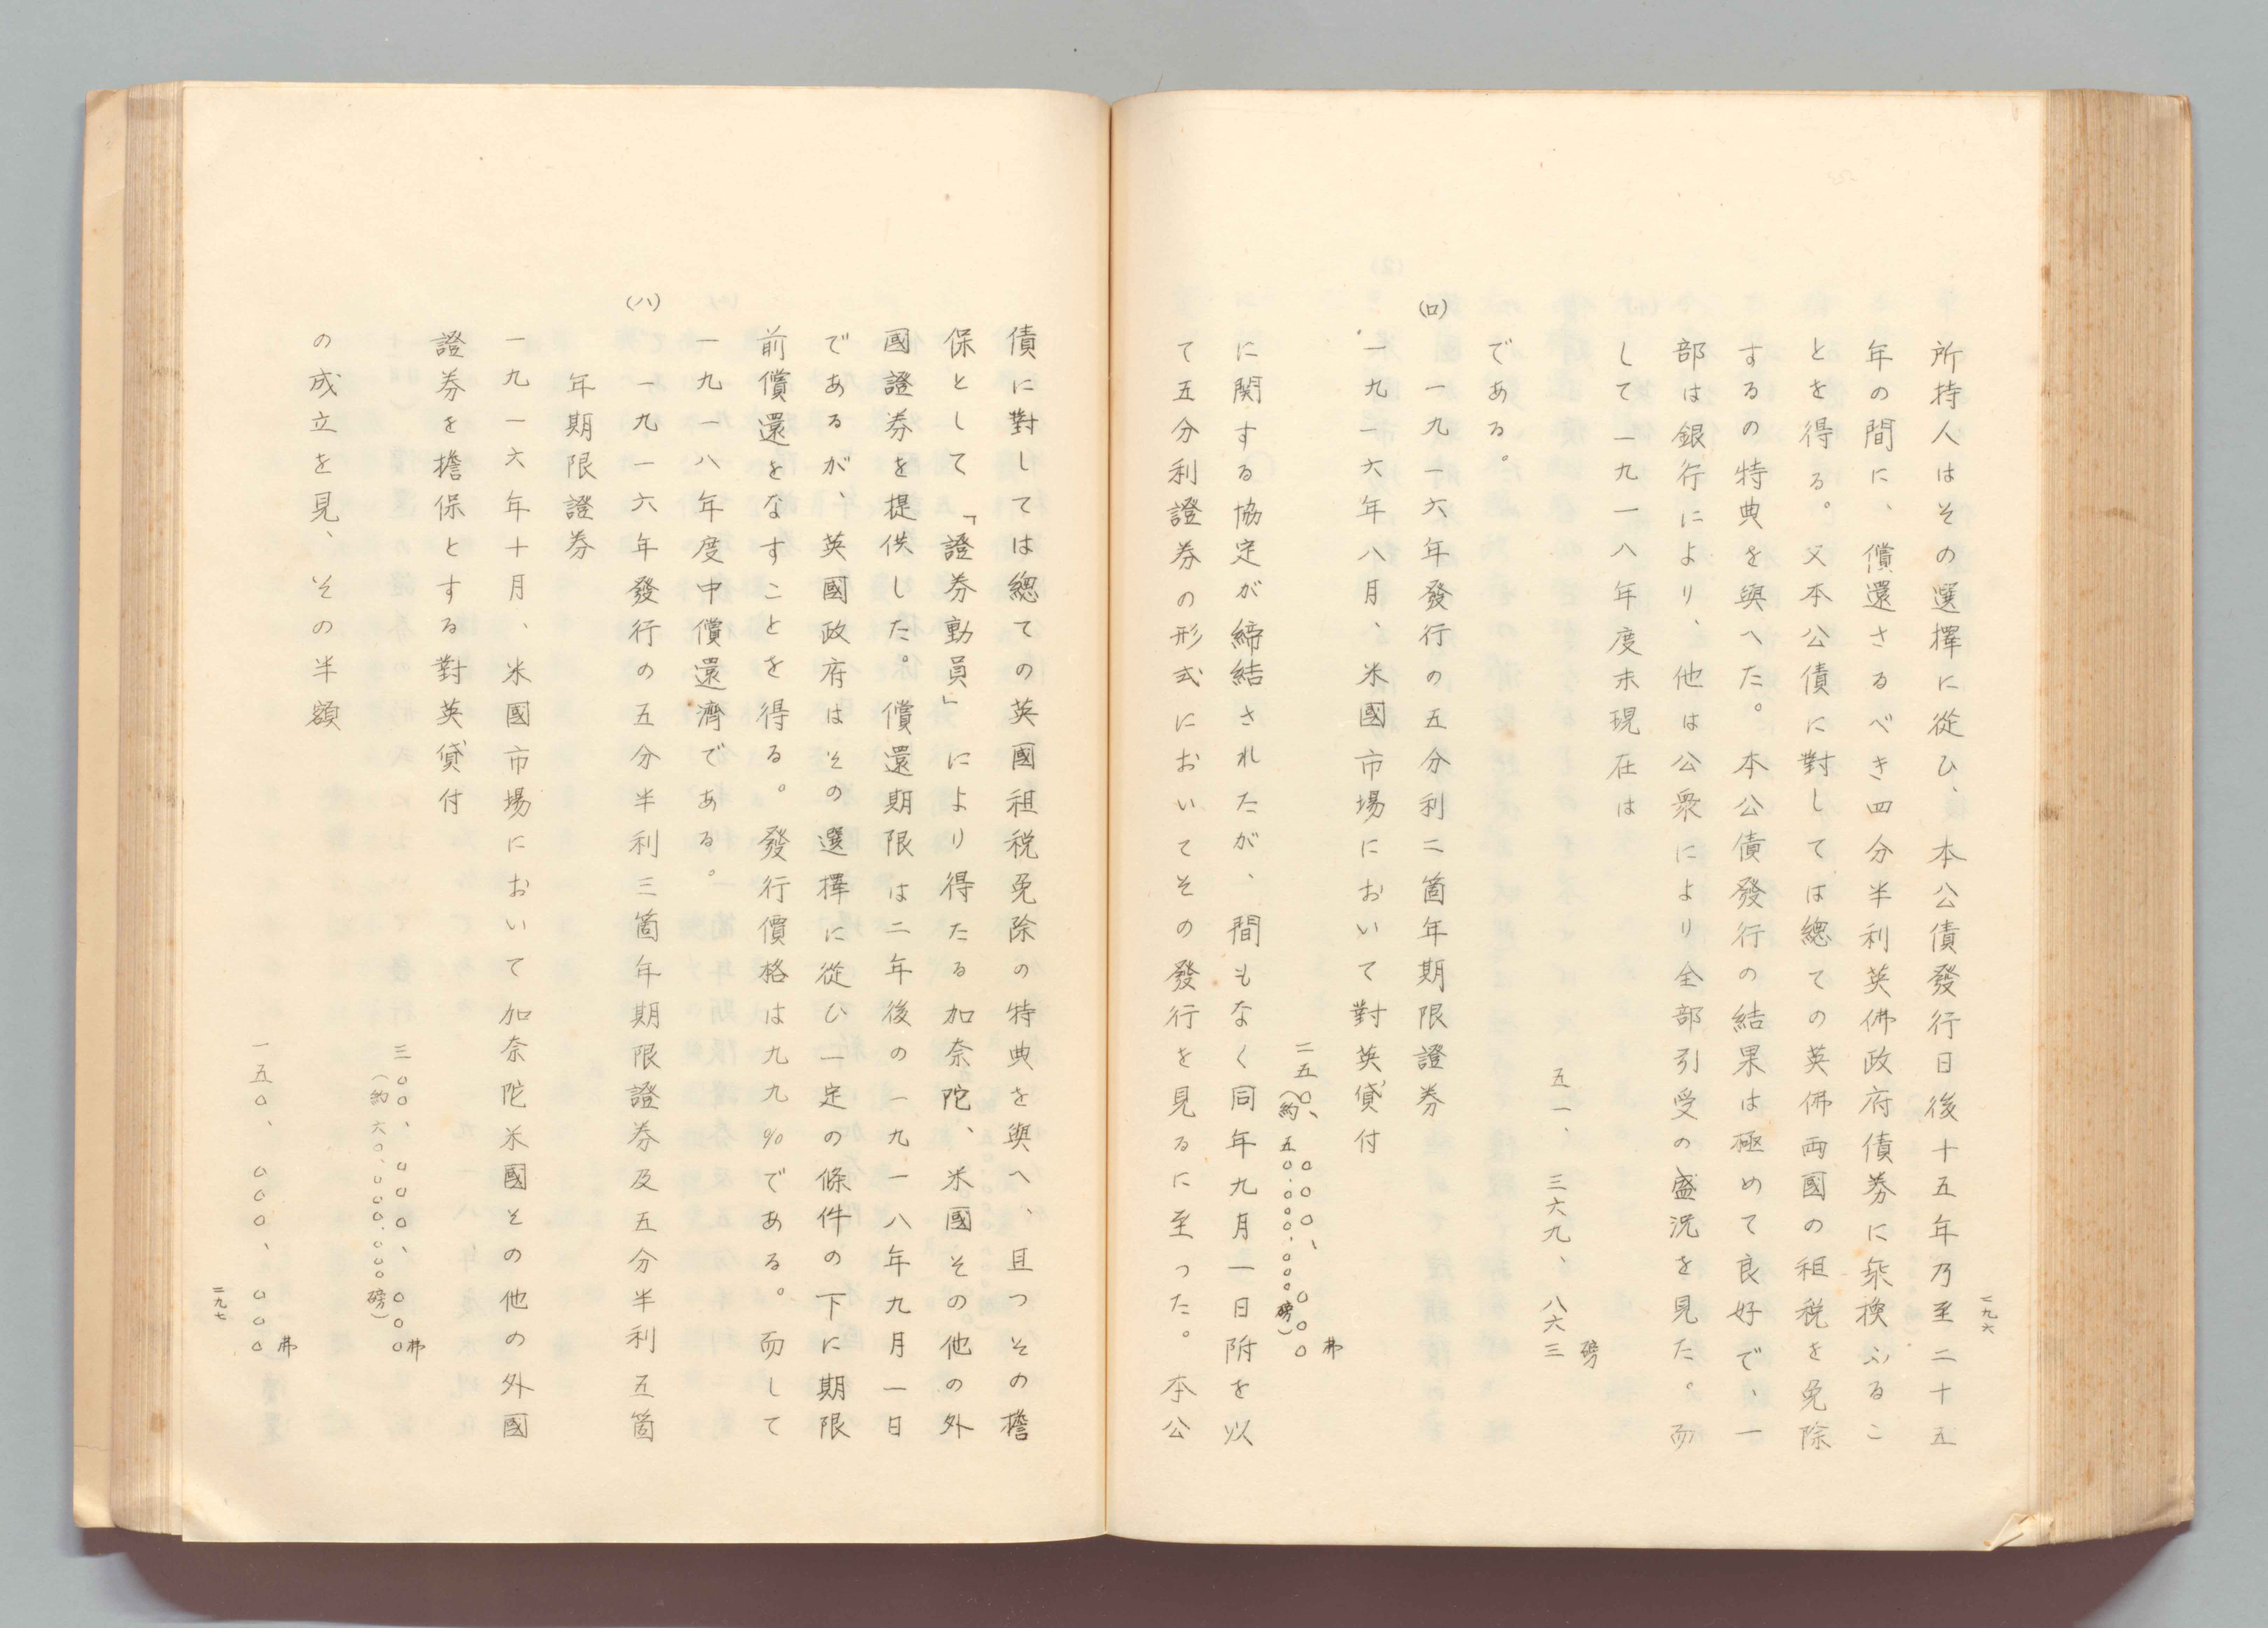 二九六
所持人はその選擇に從ひ、本公債發行日後十五年乃至二十五
年の間に、償還さるべき四分半利英佛政府債券に乘換ふるこ
とを得る。又本公債に對しては總ての英佛兩國の租税を免除
するの特典を與へた。本公債發行の結果は極めて良好で、一
部は銀行により、他は公衆により全部引受の盛況を見た。而
して一九一八年度末現在は
五一、三六九、八六三磅
である。
(ロ)一九一六年發行の五分利二箇年期限證券
一九一六年八月、米國市場において對英貸付
二五〇、〇〇〇、〇〇〇弗
(約五〇、〇〇〇、〇〇〇磅)
に関する協定が締結されたが、間もなく同年九月一日附を以
て五分利證券の形式においてその發行を見るに至つた。本公
債に對しては總ての英國租税免除の特典を與へ、且つその擔
保として「證券動員」により得たる加奈陀、米國その他の外
國證券を提供した。償還期限は二年後の一九一八年九月一日
であるが、英國政府はその選擇に從ひ一定の條件の下に期限
前償還をなすことを得る。發行價格は九九%である。而して
一九一八年度中償還濟である。
(ハ)一九一六年發行の五分半利三箇年期限證券及五分半利五箇
年期限證券
一九一六年十月、米國市場において加奈陀米國その他の外國
證券を擔保とする對英貸付
三〇〇、〇〇〇、〇〇〇弗
(約六〇、〇〇〇、〇〇〇磅)
の成立を見、その半額
一五〇、〇〇〇、〇〇〇弗
二九七